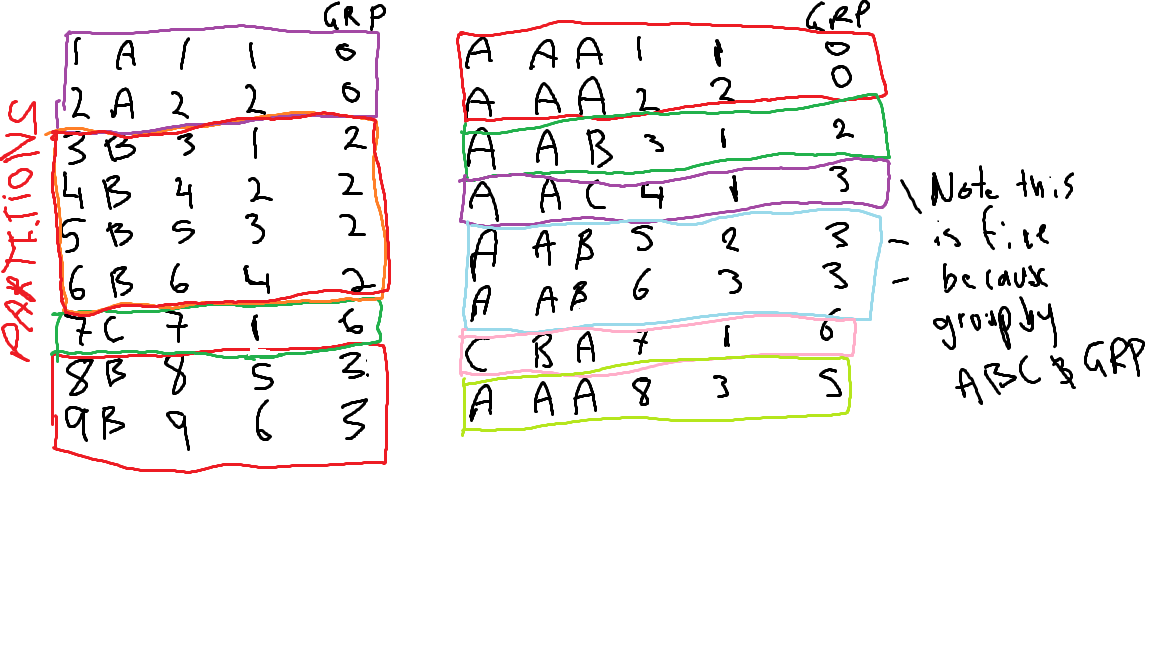 GRP
1 A 1 1 0
2 A 2 2 0
3 B 3 1 2
4 B 4 2 2
5 B 5 3 2
6 B 6 4 2
7 C 7 1 6
8 B 8 5 3
9 B 9 6 3
PARTITIONS
GRP
A A A 1 1 0
A A A 2 2 0
A A B 3 1 2
A A C 4 1 3
A A B 5 2 3
A A B 6 3 3
C B A 7 1 6
A A A 8 3 5
\ Note this
- is fine
- because
group by
ABC & GRP